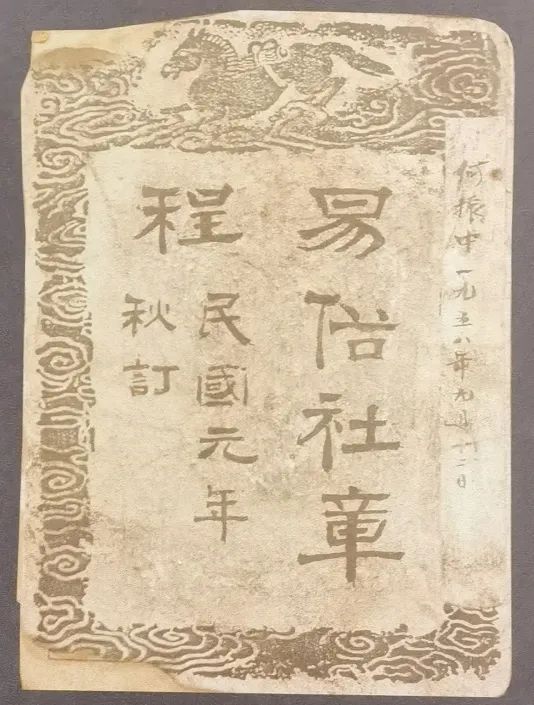 何振中 一九五八年九月十二日
易俗社章
程
民國元年
秋訂